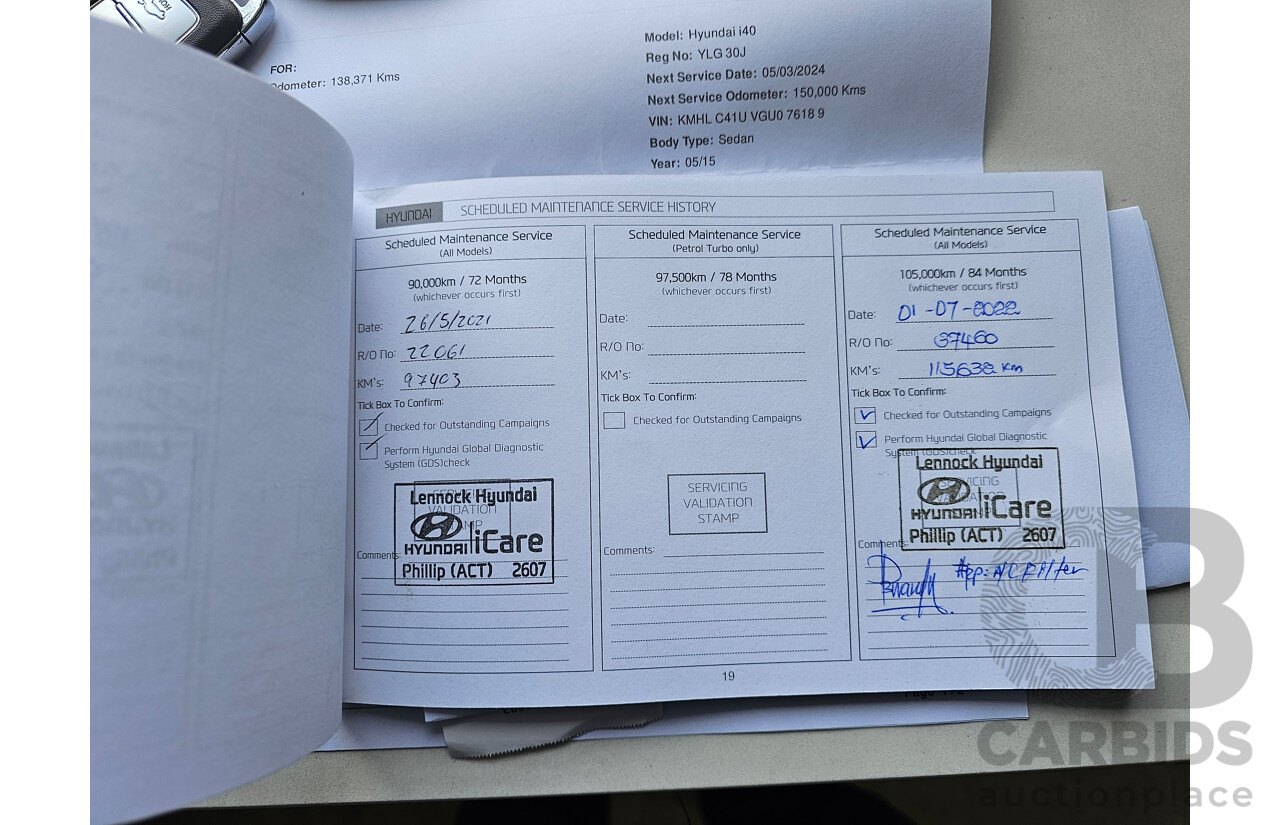 FOR:
Odometer: 138,371 Kms
Model: Hyundai i40
Reg No: YLG 30J
Next Service Date: 05/03/2024
Next Service Odometer: 150,000 Kms
VIN: KMHL C41U VGU0 7618 9
Body Type: Sedan
Year: 05/15
HYUNDAI SCHEDULED MAINTENANCE SERVICE HISTORY
Scheduled Maintenance Service
(All Models)
90,000km / 72 Months
(whichever occurs first)
Date: 26/5/2021
R/O No: 22061
KM's: 97403
Tick Box To Confirm:
Checked for Outstanding Campaigns
Perform Hyundai Global Diagnostic
System (GDS)check
Lennock Hyundai
HYUNDAI iCare
Phillip (ACT) 2607
Comments:
Scheduled Maintenance Service
(Petrol Turbo only)
97,500km / 78 Months
(whichever occurs first)
Date:
R/O No:
KM's:
Tick Box To Confirm:
Checked for Outstanding Campaigns
SERVICING
VALIDATION
STAMP
Comments:
Scheduled Maintenance Service
(All Models)
105,000km / 84 Months
(whichever occurs first)
Date: 01-07-2022
R/O No: 37460
KM's: 115638 km
Tick Box To Confirm:
Checked for Outstanding Campaigns
Perform Hyundai Global Diagnostic
System (GDS)check
Lennock Hyundai
HYUNDAI iCare
Phillip (ACT) 2607
Comments
19
CARBIDS
auctionplace